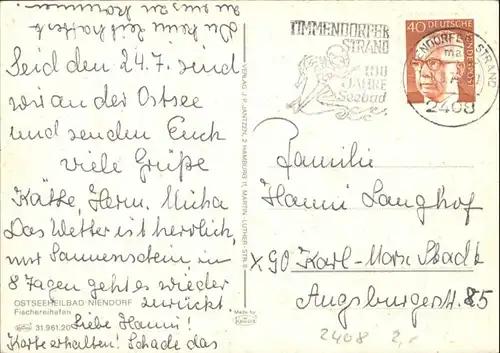 Seid den 24.7. sind
wir an der Ostsee
und senden Euch
viele Grüße
Käthe, Herm. Micha
Das Wetter ist herrlich,
nur Sonnenschein in
8 Tagen geht es wieder
zurück
Liebe Hanni!
Karte erhalten! Schade das
Du keine Zeit hattest
zu uns zu kommen
OSTSEEHEILBAD NIENDORF
Fischereihafen
31.961.20
VERLAG J. P. JANTZEN, 2 HAMBURG 11, MARTIN-LUTHER-STR. 8
Made by
TIMMENDORFER
STRAND
100
JAHRE
Seebad
40 DEUTSCHE BUNDESPOST
2408
Familie
Hanni Langhof
X90 Karl-Marx Stadt
Augsburgerstr. 85
2408 2,-